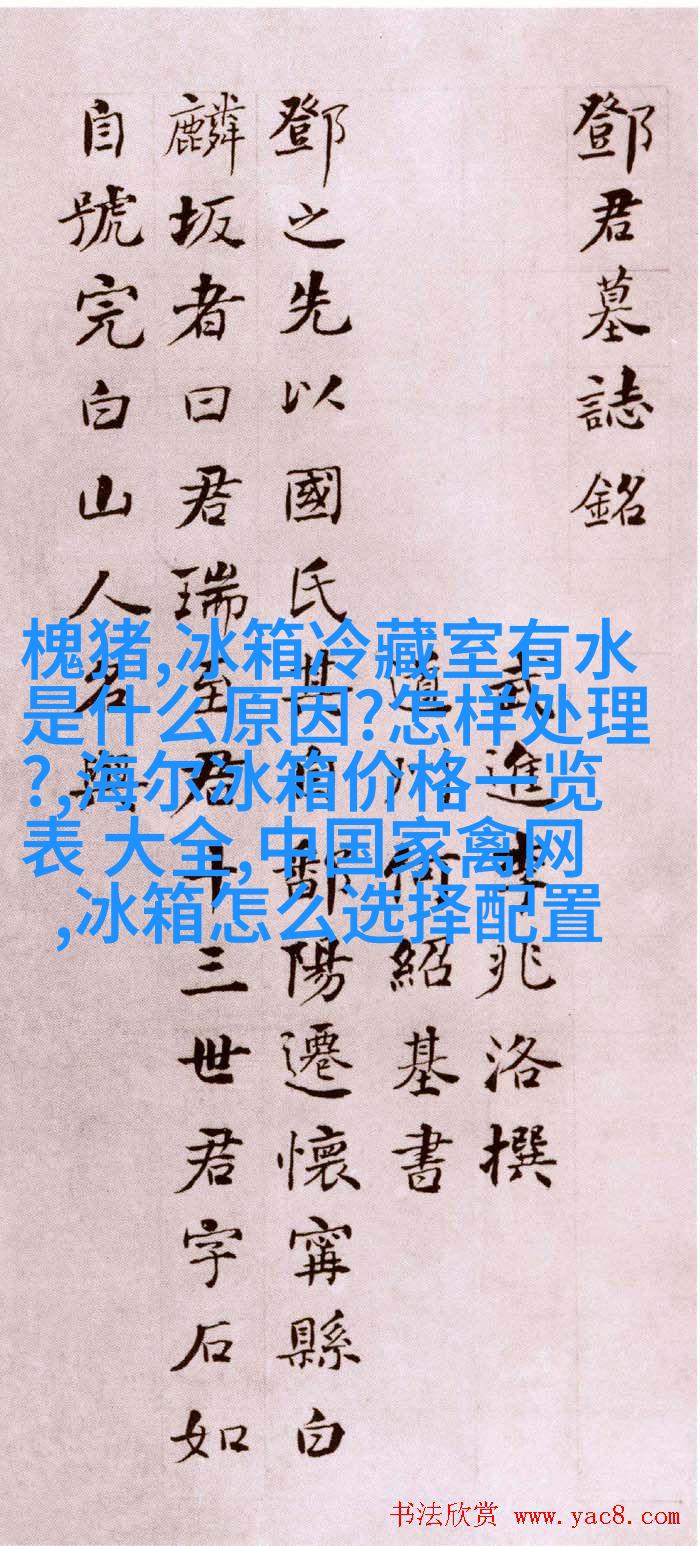 鄧君墓誌銘
武進李兆洛撰
道州何紹基書
鄧之先以國氏其自鄱陽遷懷寗縣白
麟坂者曰君瑞至君十三世君字石如
自號完白山人名與
槐猪,冰箱冷藏室有水
是什么原因?怎样处理
?,海尔冰箱价格一览
表 大全,中国家禽网
,冰箱怎么选择配置
书法欣赏 www.yac8.com